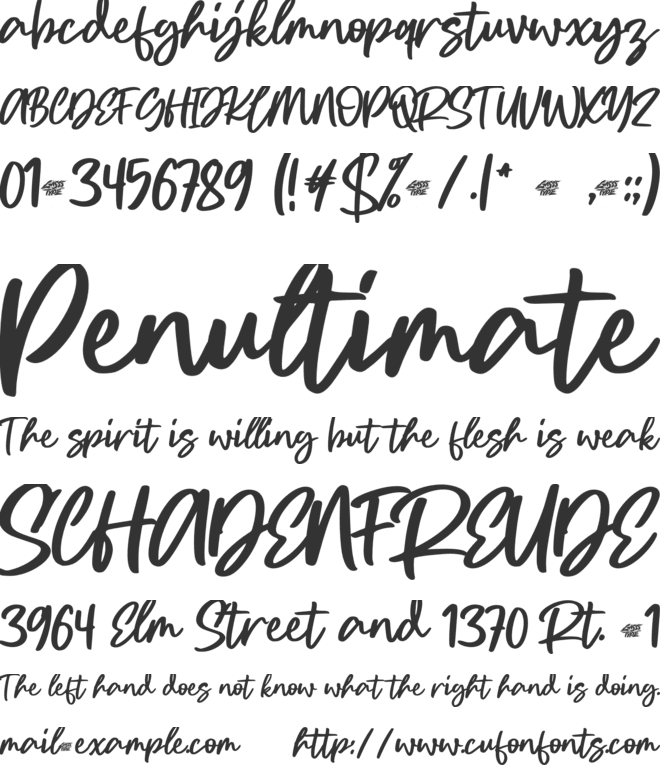 abcdefghijklmnopqrstuvwxyz
ABCDEFGHIJKLMNOPQRSTUVWXYZ
01 3456789 (!#$% /.|* , :;)
Penultimate
The spirit is willing but the flesh is weak
SCHADENFREUDE
3964 Elm Street and 1370 Rt. 1
The left hand does not know what the right hand is doing.
mail example.com http://www.cufonfonts.com